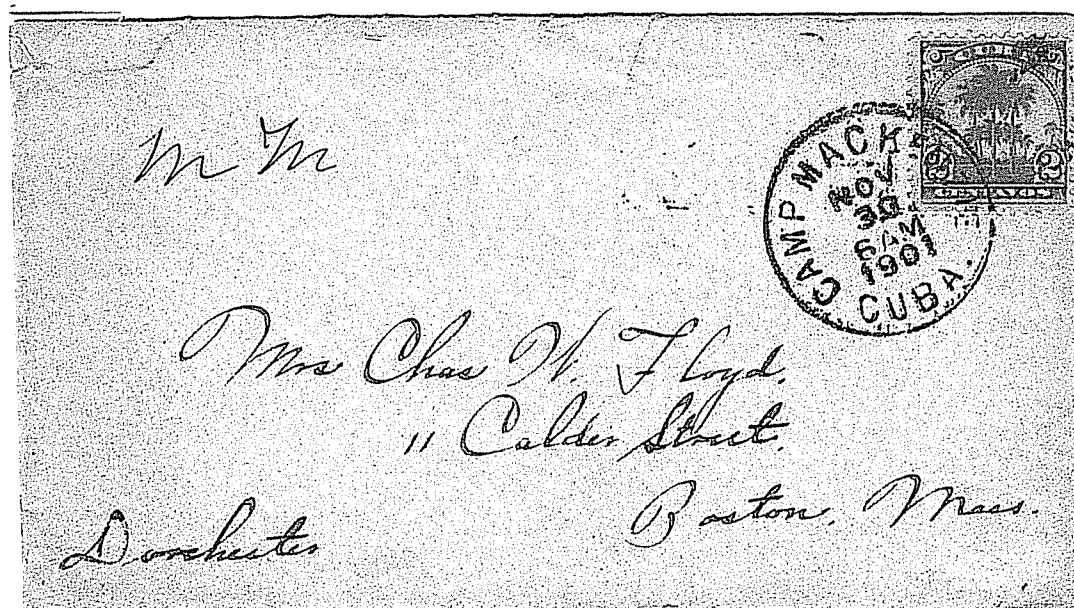 M M
CAMP MACK
NOV
30
6 AM
1901
CUBA.
2 2
Mrs Chas W. Floyd.
11 Calder Street.
Boston, Mass.
Dorchester